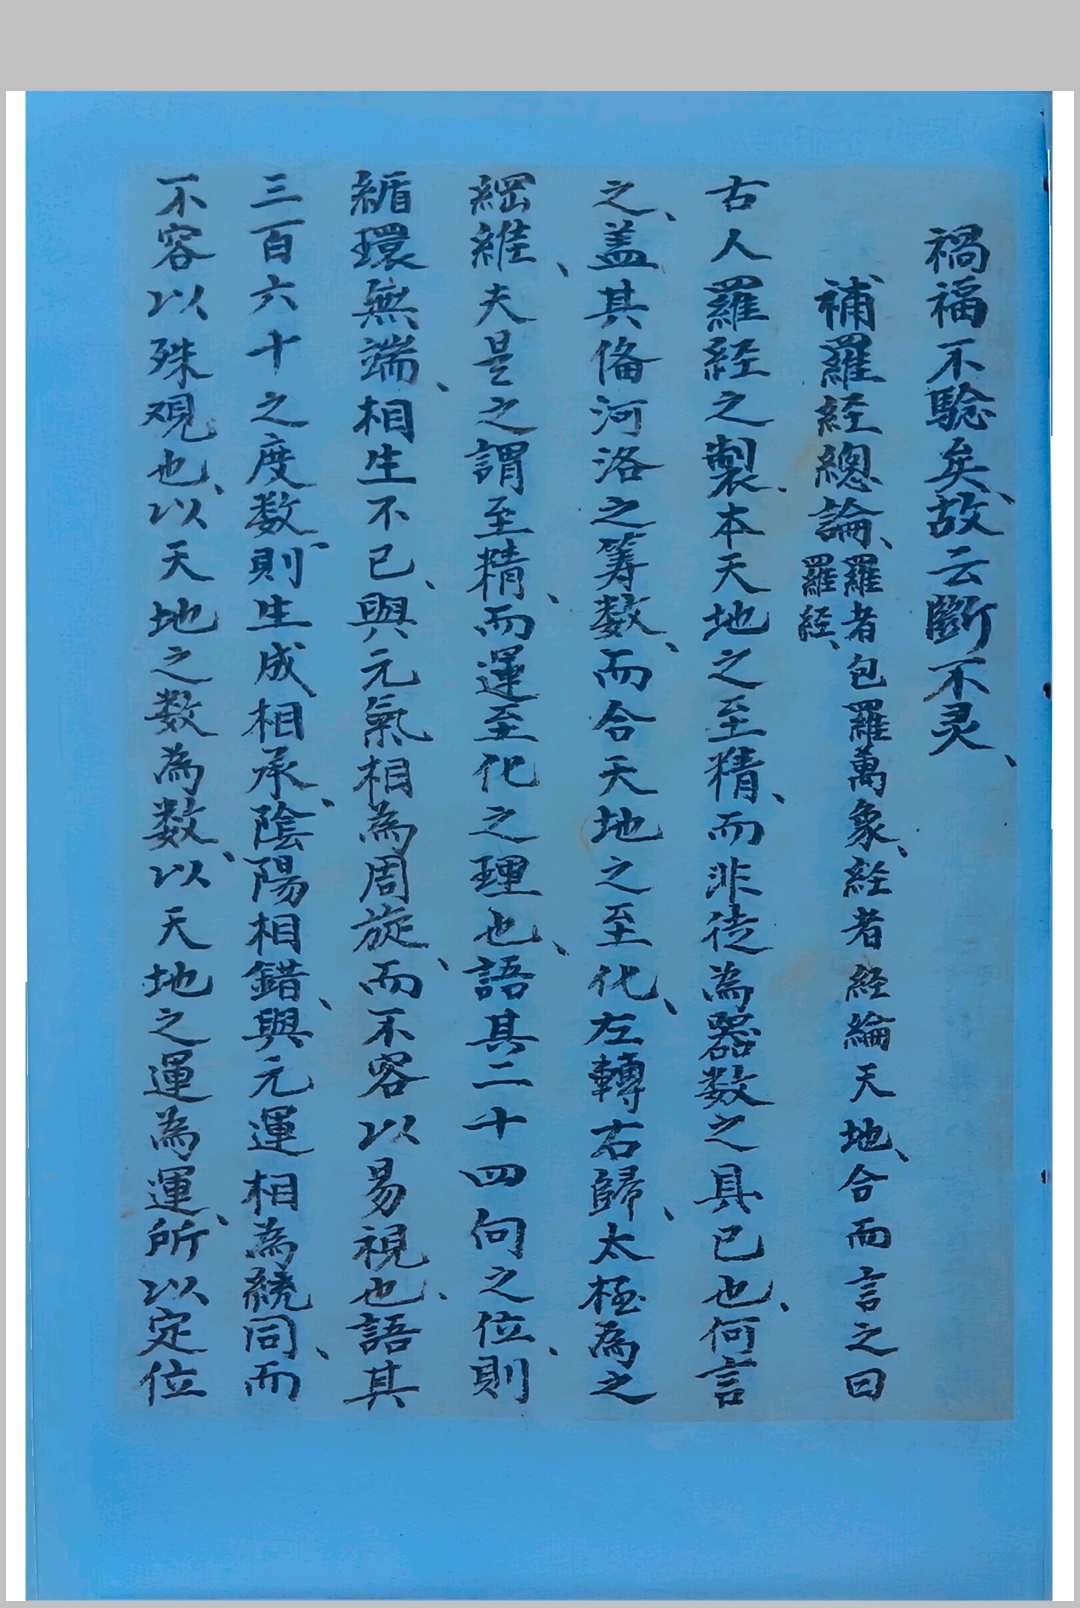 禍福不驗矣、故云斷不灵、
補羅経總論、羅者包羅萬象、経者経綸天地、合而言之曰羅経、
古人羅経之製、本天地之至精、而非徒為器数之具已也、何言
之、盖其俻河洛之筭数、而合天地之至化、左轉右歸、太極為之
綱維、夫是之謂至精、而運至化之理也、語其二十四向之位、則
循環無端、相生不已、與元氣相為周旋、而不容以易視也、語其
三百六十之度数、則生成相承、陰陽相錯、與元運相為繞同、而
不容以殊观也、以天地之数為数、以天地之運為運、所以定位